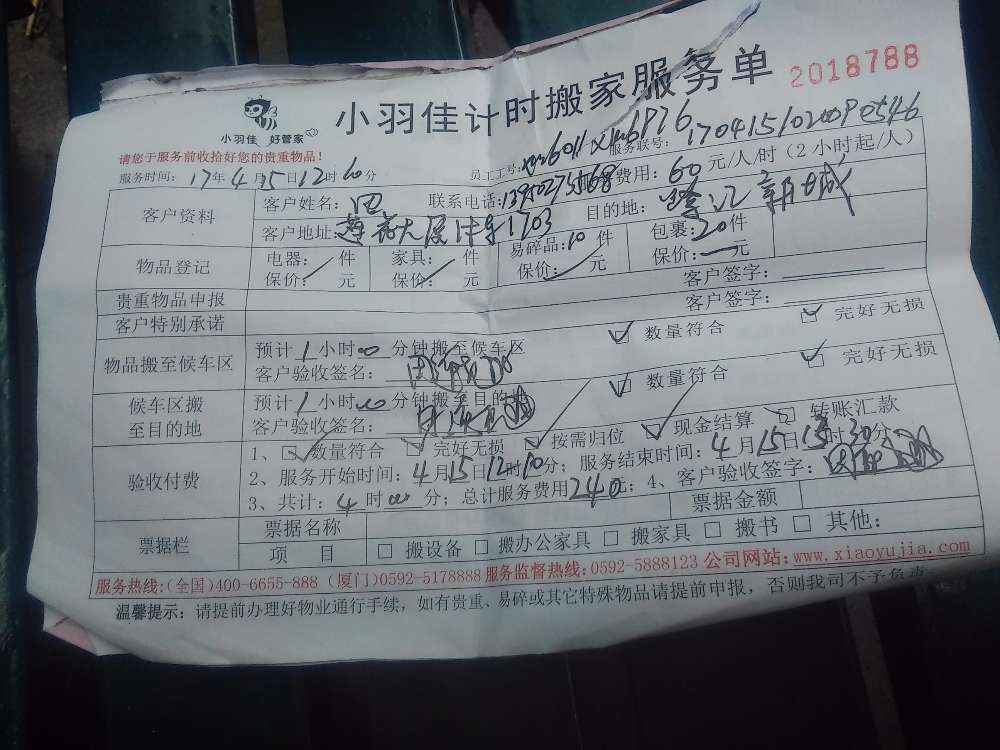 小羽佳计时搬家服务单 2018788
小羽佳 好管家
请您于服务前收拾好您的贵重物品!
员工工号: 服务联号:
服务时间: 17年4月15日12时 分 费用: 60元/人/时(2小时起/人)
客户资料 客户姓名: 田 联系电话: 目的地: 新城
客户地址: 1703
物品登记 电器: 件 家具: 件 易碎品:10件 包裹:20件
保价: 元 保价: 元 保价: 元 保价: 元
贵重物品申报 客户签字:
客户特别承诺 客户签字:
物品搬至候车区 预计1小时00分钟搬至候车区 数量符合 完好无损
客户验收签名:
候车区搬至目的地 预计1小时00分钟搬至目的地 数量符合 完好无损
客户验收签名:
验收付费 1、数量符合 完好无损 按需归位 现金结算 转账汇款
2、服务开始时间:4月15日12时10分; 服务结束时间:4月15日 时30分;
3、共计:4时00分; 总计服务费用240元; 4、客户验收签字:
票据栏 票据名称 票据金额
项 目 搬设备 搬办公家具 搬家具 搬书 其他:
服务热线:(全国)400-6655-888 (厦门)0592-5178888 服务监督热线:0592-5888123 公司网站:www.xiaoyujia.com
温馨提示: 请提前办理好物业通行手续, 如有贵重、易碎或其它特殊物品请提前申报, 否则我司不予负责